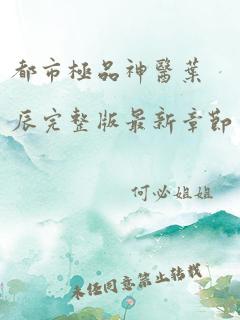 都市極品神醫葉
辰完整版最新章節
何必姐姐
未任同意禁止轉載